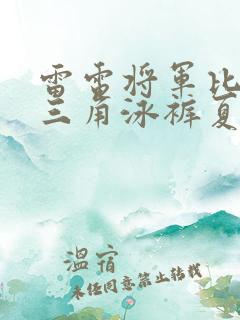 雷雷将军比
三角泳裤夏
温宿
未经同意禁止转载